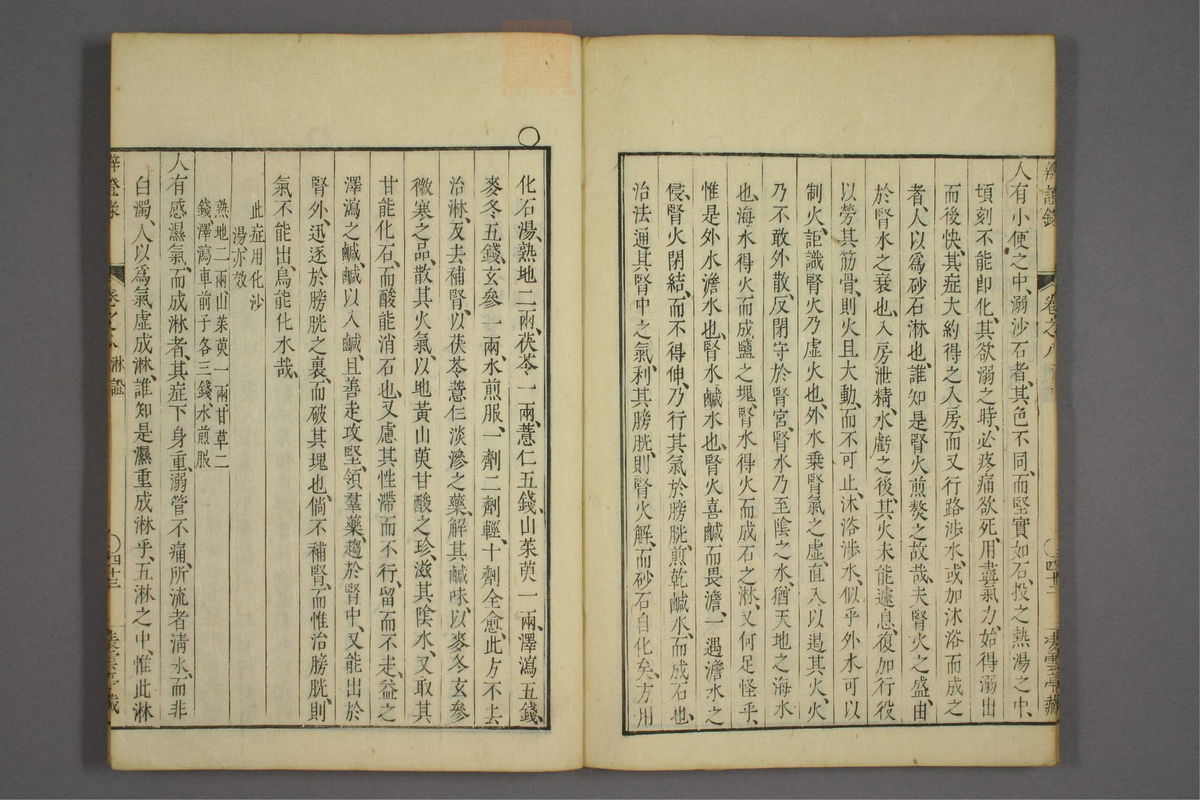 辨證錄 卷之八 凌雲亭藏
人有小便之中、溺沙石者、其色不同、而堅實如石、投之熱湯之中、
頃刻不能卽化、其欲溺之時、必疼痛欲死、用盡氣力、始得溺出
而後快、其症大約得之入房、而又行路涉水、或加沐浴而成之
者、人以爲砂石淋也、誰知是腎火煎熬之故哉、夫腎火之盛、由
於腎水之衰也、入房泄精、水虧之後、其火未能遽息、復加行役
以勞其筋骨、則火且大動、而不可止、沐浴涉水、似乎外水可以
制火、詎識腎火乃虛火也、外水乘腎氣之虛、直入以遏其火、火
乃不敢外散、反閉守於腎宮、腎水乃至陰之水、猶天地之海水
也、海水得火而成鹽之塊、腎水得火而成石之淋、又何足怪乎、
惟是外水淡水也、腎水鹹水也、腎火喜鹹而畏澹、一遇澹水之
侵、腎火閉結、而不得伸、乃行其氣於膀胱、煎乾鹹水、而成石也、
治法通其腎中之氣、利其膀胱、則腎火解、而砂石自化矣、方用
〇
化石湯、熟地二兩、茯苓一兩、薏仁五錢、山茱萸一兩、澤瀉五錢、
麥冬五錢、玄參一兩、水煎服、一劑二劑輕、十劑全愈、此方不去
治淋、反去補腎、以茯苓薏仁淡滲之藥、解其鹹味、以麥冬玄參
微寒之品、散其火氣、以地黃山萸甘酸之珍、滋其陰水、又取其
甘能化石、而酸能消石也、又慮其性滯而不行、留而不走、益之
澤瀉之鹹、鹹以入鹹、且善走攻堅、領羣藥、趨於腎中、又能出於
腎外、迅逐於膀胱之裏、而破其塊也、倘不補腎、而惟治膀胱、則
氣不能出、烏能化水哉、
此症用化沙
湯亦效
熟地二兩山茱萸一兩甘草二
錢、澤瀉車前子各三錢水煎服
人有感濕氣、而成淋者、其症下身重、溺管不痛、所流者淸水、而非
白濁、人以爲氣虛成淋、誰知是濕重成淋乎、五淋之中、惟此淋
辨證錄 卷之八 淋證 〇四十三 凌雲亭藏